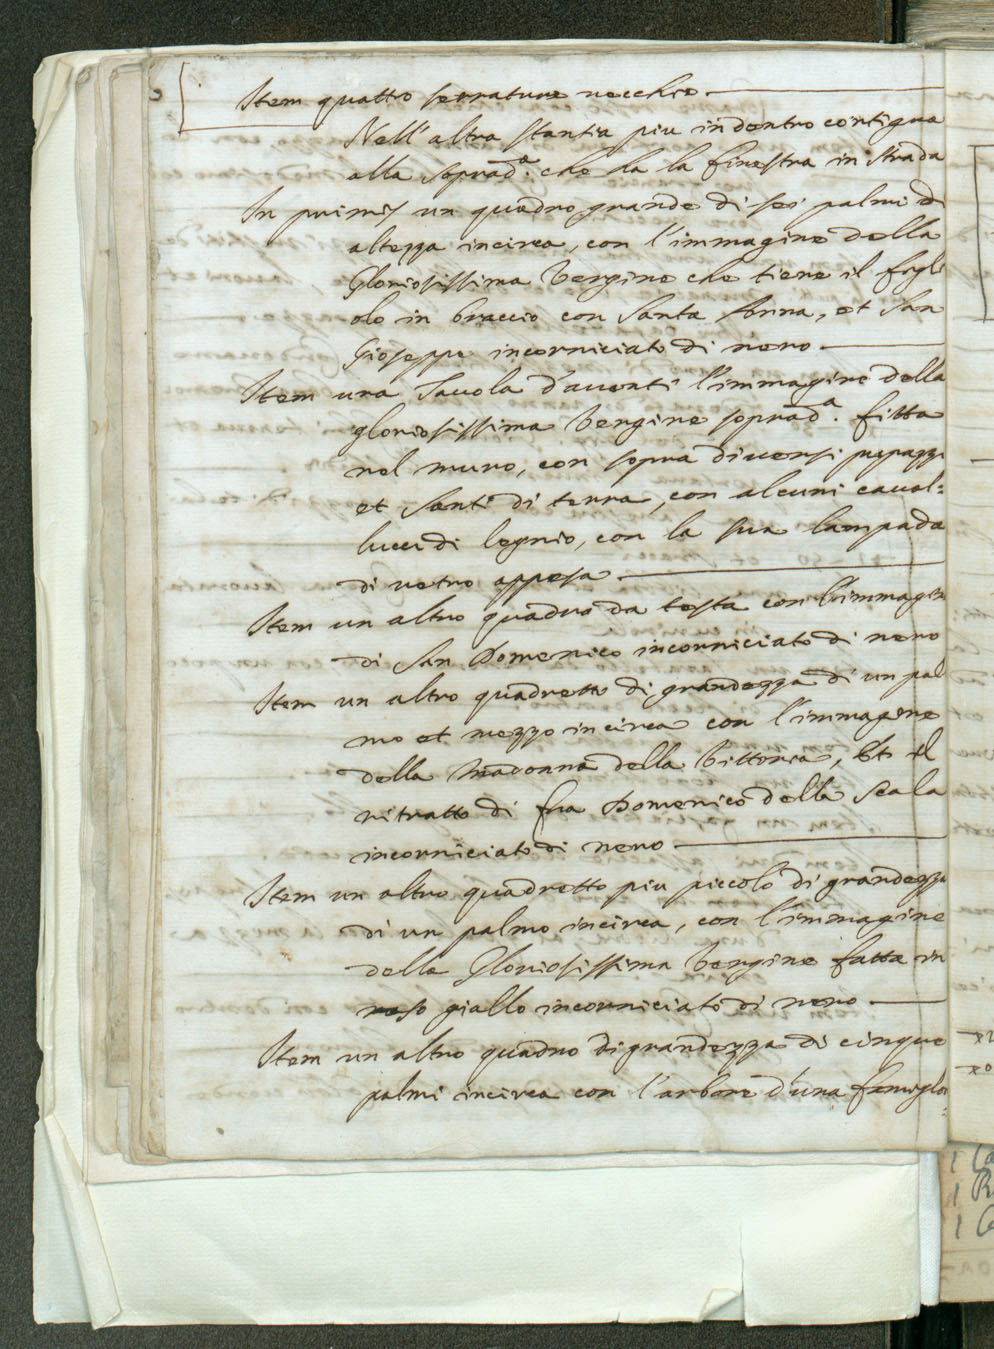 Item quattro serrature vecchie.
Nell'altra stantia piu in dentro contigua
alla soprad.a che ha la finestra in strada
In primis un quadro grande di sei palmi di
altezza incirca, con l'immagine della
Gloriosissima Vergine che tiene il figli
olo in braccio con Santa Anna, et San
Gioseppe incorniciato di nero
Item una Tavola d'avanti l'immagine della
gloriosissima Vergine soprad.a fitta
nel muro, con sopra diversi pupazzi
et Santi di terra, con alcuni caval=
lucci di legnio, con la sua lampada
di vetro appesa
Item un altro quadro da testa con l'immagin
di San Domenico incorniciato di nero
Item un altro quadretto di grandezza di un pal
mo et mezzo incirca con l'immagine
della Madonna della Vittoria, et il
ritratto di fra Domenico della Scala
incorniciato di nero
Item un altro quadretto piu piccolo di grandezza
di un palmo incirca, con l'immagine
della Gloriosissima Vergine fatta in
raso giallo incorniciato di nero
Item un altro quadro di grandezza di cinque
palmi incirca con l'arbore d'una famiglia